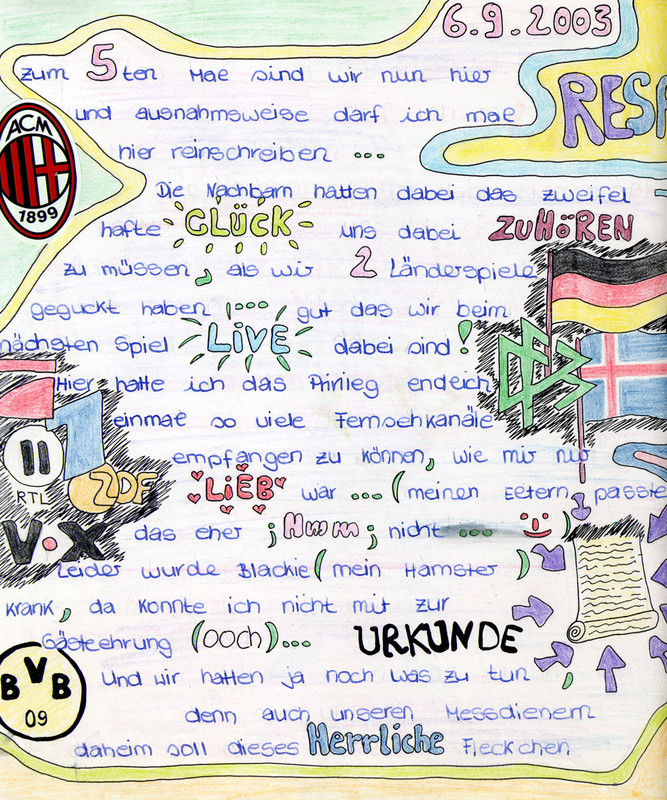 6.9.2003
zum 5ten Mae sind wir nun hier
RESP
und ausnahmsweise darf ich mae
ACM
1899
hier reinschreiben ...
Die Nachbarn hatten dabei das zweifel
hafte GLÜCK uns dabei ZUHÖREN
zu müssen, als wir 2 Länderspiele
geguckt haben !... gut das wir beim
nächsten Spiel LiVE dabei sind!
DFB
Hier hatte ich das Prinieg endeich
einmae so viele Fernsehkanäle
II
RTL
ZDF
empfangen zu können, wie mir nur
LiEB war ... (meinen Eetern passte
VOX
das eher ; Hmm ; nicht ... )
Leider wurde Blackie (mein Hamster )
krank, da konnte ich nicht mit zur
Gästeehrung (ooch)... URKUNDE
BVB
09
Und wir hatten ja noch was zu tun,
denn auch unseren Messdienern
daheim soll dieses Herrliche Fleckchen